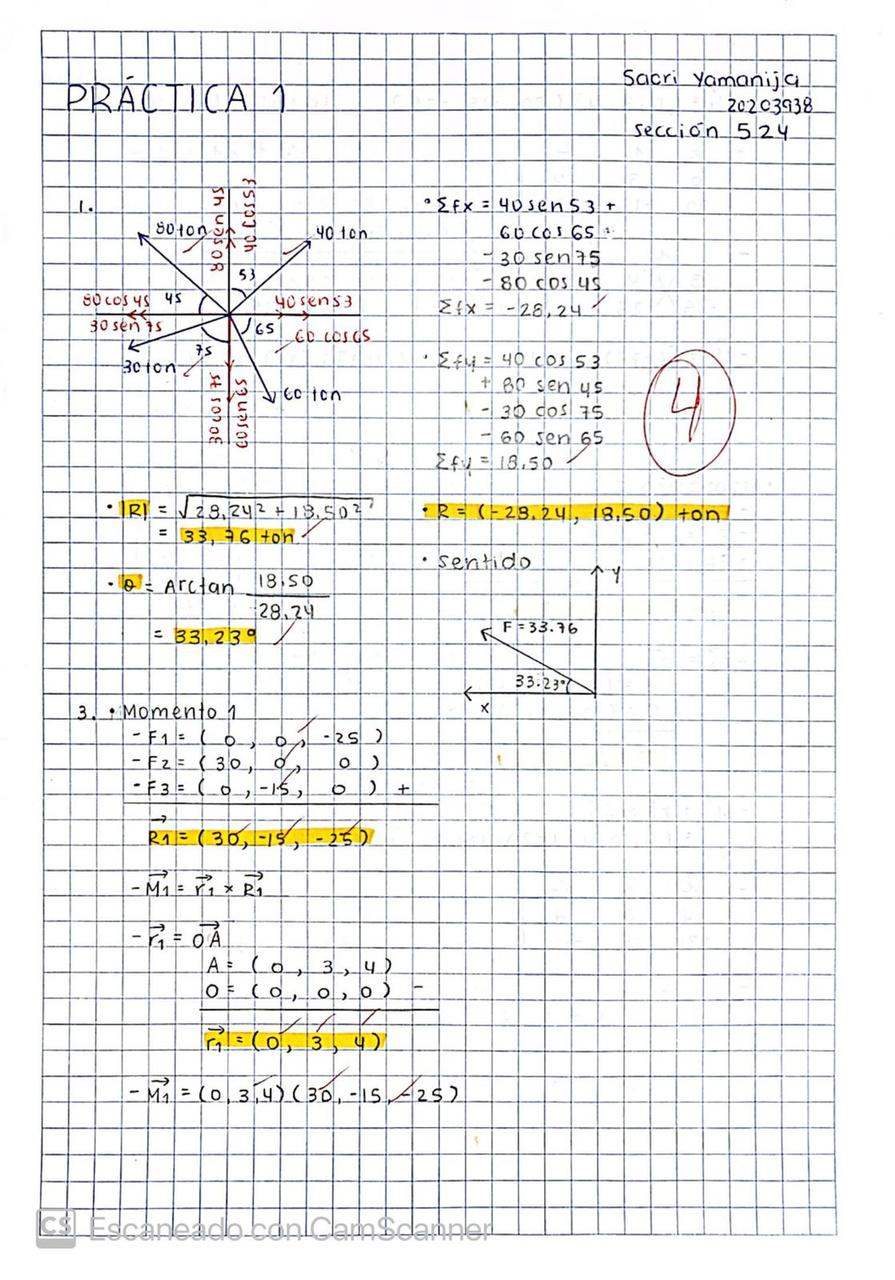 PRÁCTICA 1
Sacri Yamanija
20203938
sección 524
1.
80 ton
80 sen 45
40 cos 53
40 ton
53
80 cos 45
45
40 sen 53
30 sen 75
65
60 cos 65
75
30 ton
60 ton
30 cos 75
60 sen 65
• Σfx = 40 sen 53 +
60 cos 65
- 30 sen 75
- 80 cos 45
Σfx = -28,24
• Σfy = 40 cos 53
+ 80 sen 45
- 30 cos 75
- 60 sen 65
Σfy = 18.50
4
• |R| = √28,24² + 18,50²
= 33,76 ton
• R = (-28.24, 18.50) ton
• θ = Arctan 18,50
28,24
= 33,23°
• sentido
y
F = 33.76
33.23°
x
3. • Momento 1
- F1 = ( 0 , 0 , -25 )
- F2 = ( 30 , 0 , 0 )
- F3 = ( 0 , -15 , 0 ) +
R1 = (30, -15, -25)
- M1 = r1 × R1
- r1 = OA
A = ( 0 , 3 , 4 )
O = ( 0 , 0 , 0 ) -
r1 = (0, 3, 4)
- M1 = (0, 3, 4) (30, -15, -25)
CS Escaneado con CamScanner